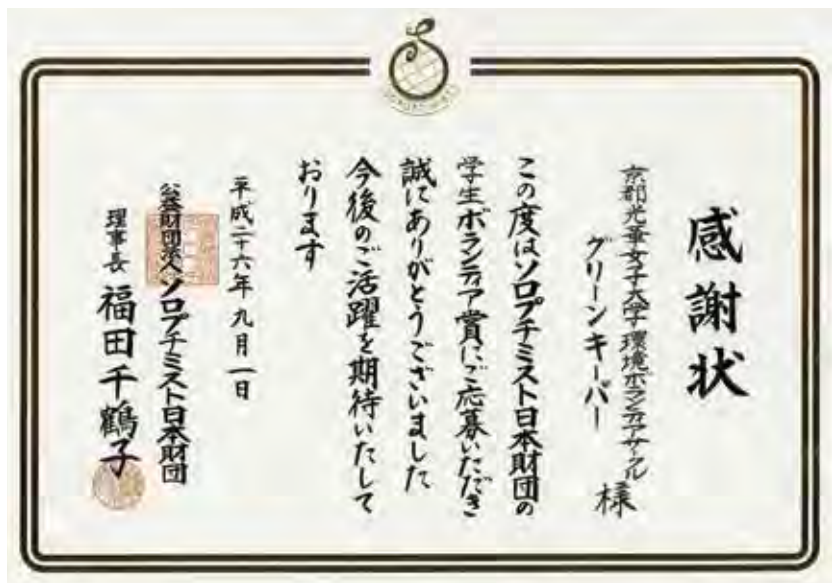 感謝状
京都光華女子大学環境ボランティアサークル
グリーンキーパー 様
この度はソロプチミスト日本財団の
学生ボランティア賞にご応募いただき
誠にありがとうございました
今後のご活躍を期待いたして
おります
平成二十六年九月一日
公益財団法人ソロプチミスト日本財団
理事長 福田千鶴子